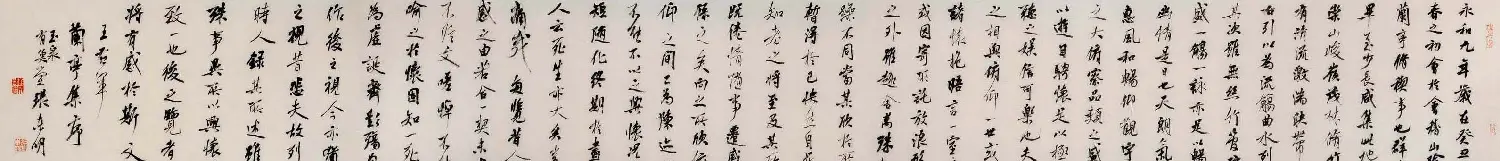 永和九年歲在癸丑
春之初會於會稽山
蘭亭脩禊事也群
畢至少長咸集此地
崇山峻嶺茂林脩竹
有清流激湍映帶
右引以為流觴曲水列
其次雖無絲竹管
盛一觴一詠亦足以暢
幽情是日也天朗氣
惠風和暢仰觀宇
之大俯察品類之盛
以遊目騁懷足以極
聽之娛信可樂也夫
之相與俯仰一世或
諸懷抱晤言一室
或因寄所託放浪形
之外雖趣舍萬殊
躁不同當其欣於所
暫得於己快然自足
知老之將至及其所
既倦情隨事遷感
係之矣向之所欣俛
仰之間已為陳迹
不能不以之興懷況
短隨化終期於盡
人云死生亦大矣豈
痛哉每覽昔人
感之由若合一契未
不臨文嗟悼不能
喻之於懷固知一死
為虛誕齊彭殤為
作後之視今亦猶
之視昔悲夫故列
時人錄其所述雖
殊事異所以興懷
致一也後之覽者
將有感於斯文
王右軍
蘭亭集序